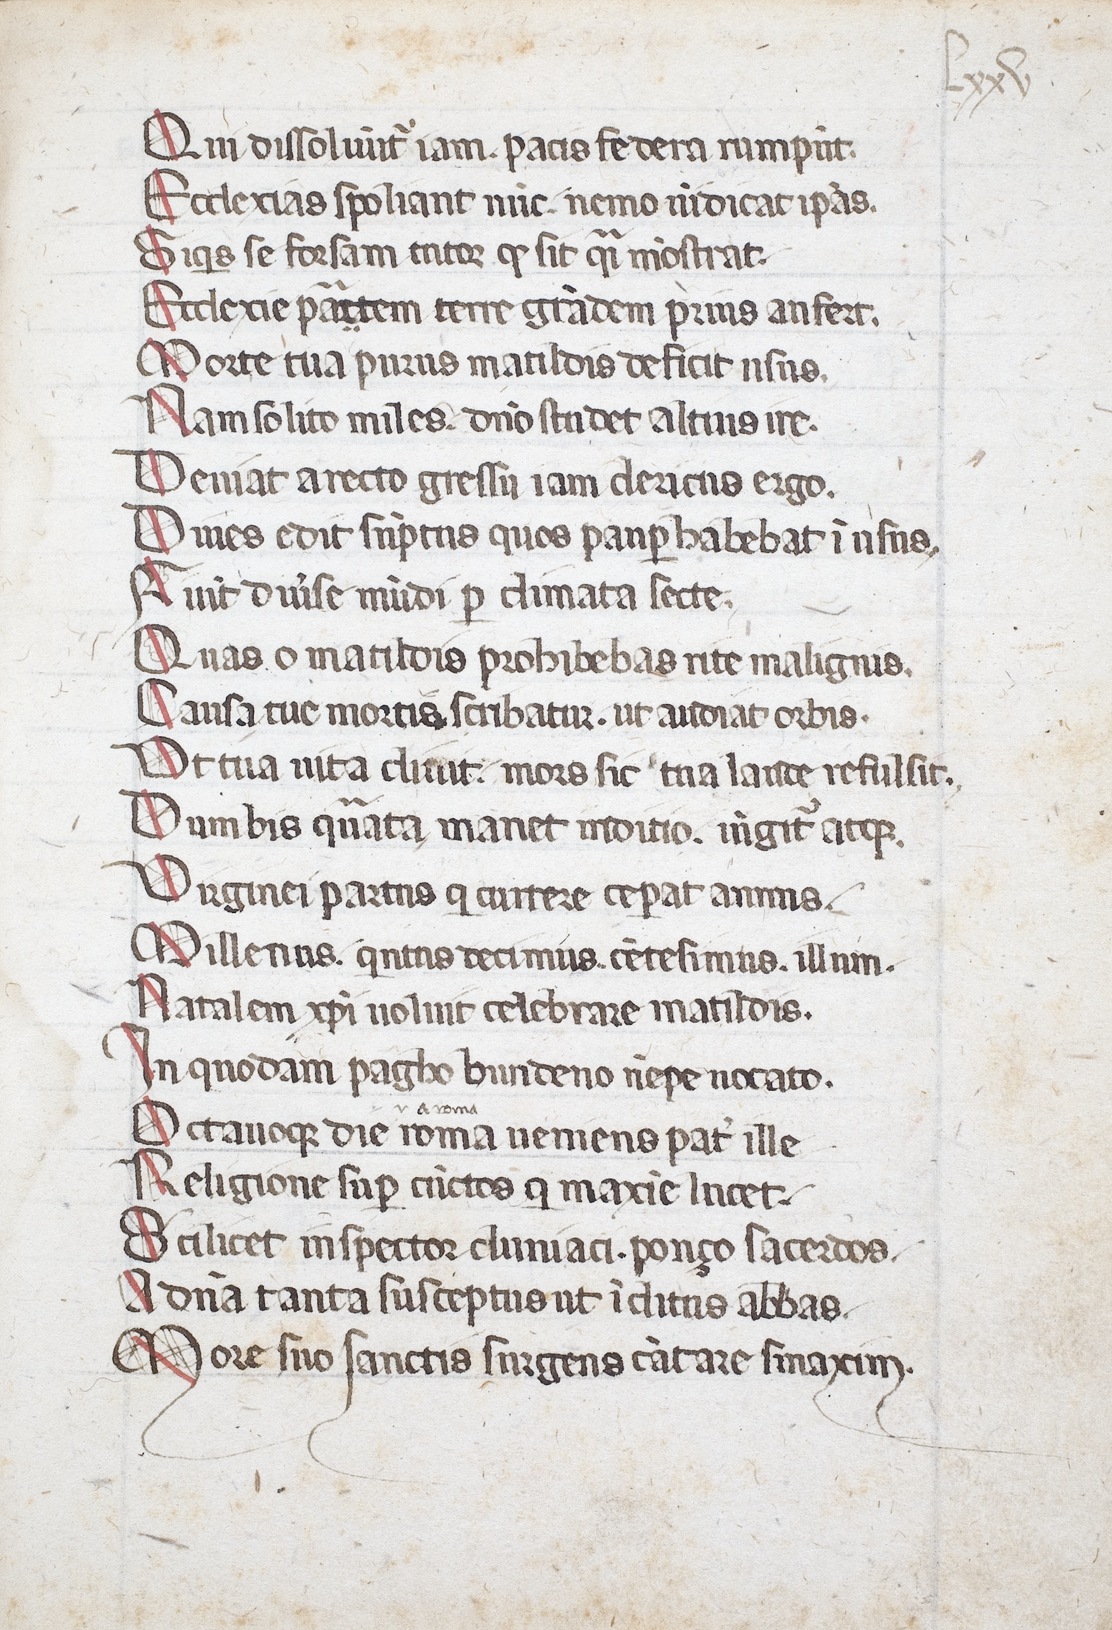 Lxxv
Qui dissoluũt᷑ iam. pacis federa rumpũt.
Ecclexias spoliant nũc. nemo uĩdicat ip̃as.
Siq̃s se forsam tutor ꝙ sit q̃i mõstrat.
Ecclexie pãrtem terre grãdem prius aufert.
Morte tua purus matildis deficit usus.
Nam solito miles. dñio studet altius ire.
Deuiat a recto gressu iam clericus ergo.
Diues edit sũptus quos pauꝑ habebat ĩ usus.
Fiũt diũse mũdi ꝑ climata secte.
Quas o matildis prohibebas rite malignis.
Causa tue mortis scribatur. ut audiat orbis.
Vt tua uita cluit. mors sic tua laude refulsit.
Dum bis q̃uata manet inditio. iũgit᷑ atqꝫ.
Virginei partus q currere ceperat annus.
Millenus. qntus decimus. cẽtesimus. illum.
Natalem xp̃i uoluit celebrare matildis.
In quodam pagho bundeno nẽpe uocato.
v a roma
Octauoqꝫ die roma ueniens pat᷑ ille
Religione suꝑ cũctos q maxĩe lucet.
Scilicet inspector cluniaci. ponço sacerdos.
A dñã tanta susceptus ut ĩclitus abbas.
More suo sanctis surgens cãtare sinaxim.